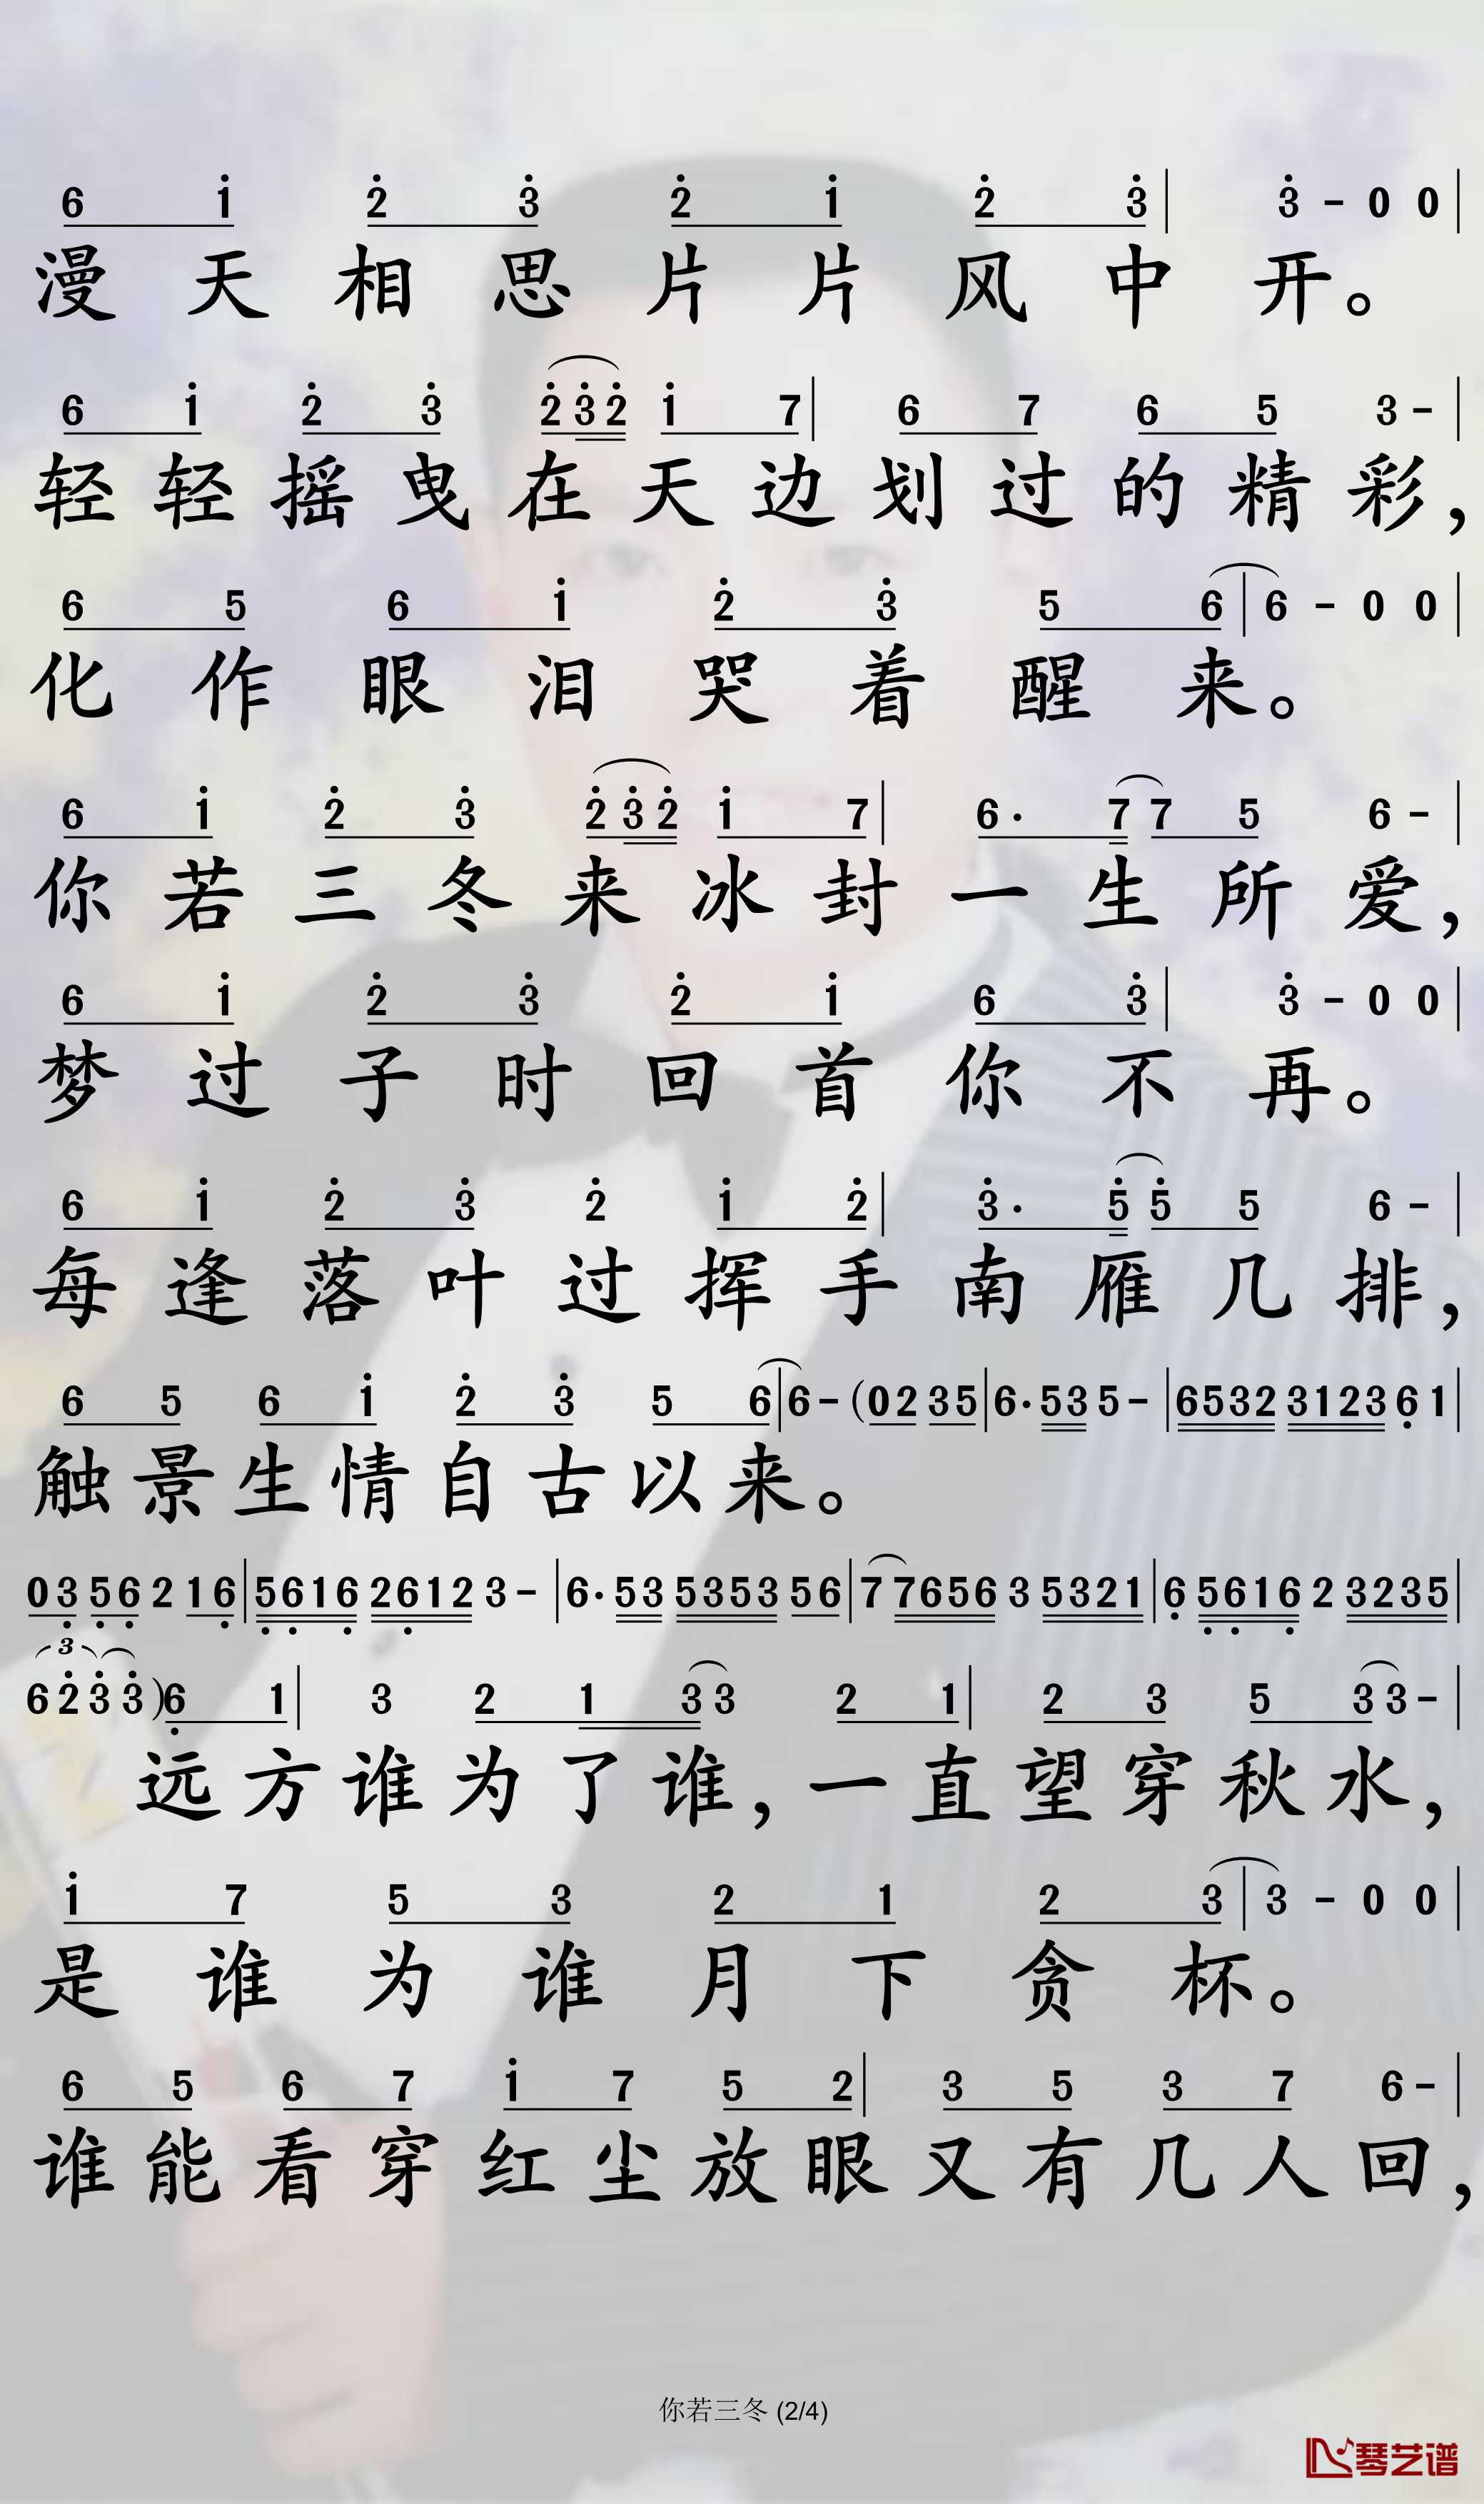 6 1̇ 2̇ 3̇ 2̇ 1̇ 2̇ 3̇ | 3̇ - 0 0 |
漫天相思片片风中开。
6 1̇ 2̇ 3̇ 2̇3̇2̇ 1̇ 7 | 6 7 6 5 3 - |
轻轻摇曳在天边划过的精彩，
6 5 6 1̇ 2̇ 3̇ 5 6 | 6 - 0 0 |
化作眼泪哭着醒来。
6 1̇ 2̇ 3̇ 2̇3̇2̇ 1̇ 7 | 6· 7 7 5 6 - |
你若三冬来冰封一生所爱，
6 1̇ 2̇ 3̇ 2̇ 1̇ 6 3̇ | 3̇ - 0 0 |
梦过子时回首你不再。
6 1̇ 2̇ 3̇ 2̇ 1̇ 2̇ | 3̇· 5̇ 5̇ 5 6 - |
每逢落叶过挥手南雁几排，
6 5 6 1̇ 2̇ 3̇ 5 6 | 6 - (0 2 3 5 | 6· 5 3 5 - | 6 5 3 2 3 1 2 3 6̣ 1 |
触景生情自古以来。
0 3̣ 5̣ 6̣ 2 1 6̣ | 5̣ 6̣ 1 6̣ 2 6̣ 1 2 3 - | 6· 5 3 5 3 5 3 5 6 | 7 7 6 5 6 3 5 3 2 1 | 6̣ 5̣ 6̣ 1 6̣ 2 3 2 3 5 |
3
6 2̇ 3̇ 3̇ ) 6̣ 1 | 3 2 1 3 3 2 1 | 2 3 5 3 3 - |
远方谁为了谁，一直望穿秋水，
1̇ 7 5 3 2 1 2 3 | 3 - 0 0 |
是谁为谁月下贪杯。
6 5 6 7 1̇ 7 5 2 | 3 5 3 7 6 - |
谁能看穿红尘放眼又有几人回，
你若三冬 (2/4)
琴艺谱